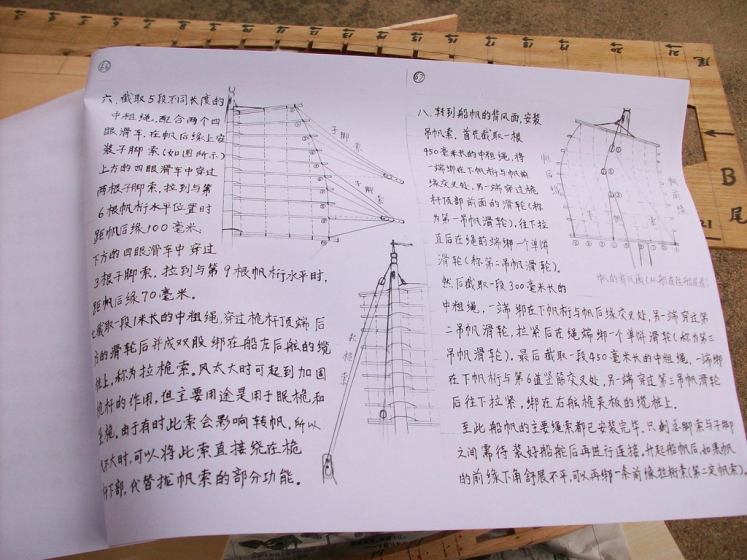 66
六、截取5段不同长度的
中粗绳,配合两个四
眼滑车,在帆后缘上安
装子脚索(如图所示)
上方的四眼滑车中穿过
两根子脚索,拉到与第
6根帆桁水平位置时
距帆后缘100毫米,
下方的四眼滑车中穿过
3根子脚索,拉到与第9根帆桁水平时,
距帆后缘70毫米。
七截取一段1米长的中粗绳,穿过桅杆顶端后
的滑轮后并成双股绑在船左后舷的缆
桩上,称为拉桅索。风太大时可起到加固
桅杆的作用,但主要用途是用于眠桅和
桅。由于有时此索会影响转帆,所以
大时,可以将此索直接绕在桅
下部,代替拢帆索的部分功能。
子脚索
子脚索
拉桅索
67
八、转到船帆的背风面,安装
吊帆索。首先截取一根
950毫米长的中粗绳,将
一端绑在下帆桁与帆前
缘交叉处,另一端穿过桅
杆顶部前面的滑轮(称
为第一吊帆滑轮),往下拉
直后在绳的端绑一个单饼
滑轮(称第二吊帆滑轮)。
然后截取一段300毫米长的
中粗绳,一端绑在下帆桁与帆后缘交叉处,另一端穿过第
二吊帆滑轮,拉紧后在绳端绑一个单饼滑轮(称为第三
吊帆滑轮)。最后截取一段450毫米长的中粗绳,一端绑
在下帆桁与第6道竖筋交叉处,另一端穿过第三吊帆滑轮
后往下拉紧,绑在右舷桅夹板的缆桩上。
至此船帆的主要绳索都已安装完毕,只剩缭脚索与子脚
之间需待装好船舵后再进行连接。升起船帆后,如果帆
的前缘下角舒展不平,可以再绑一条前缘拉桁索(第二定帆索)。
帆后缘
帆前缘
帆的背风面
14 15 16 17 18 19 20 21 尾
B
尾
21